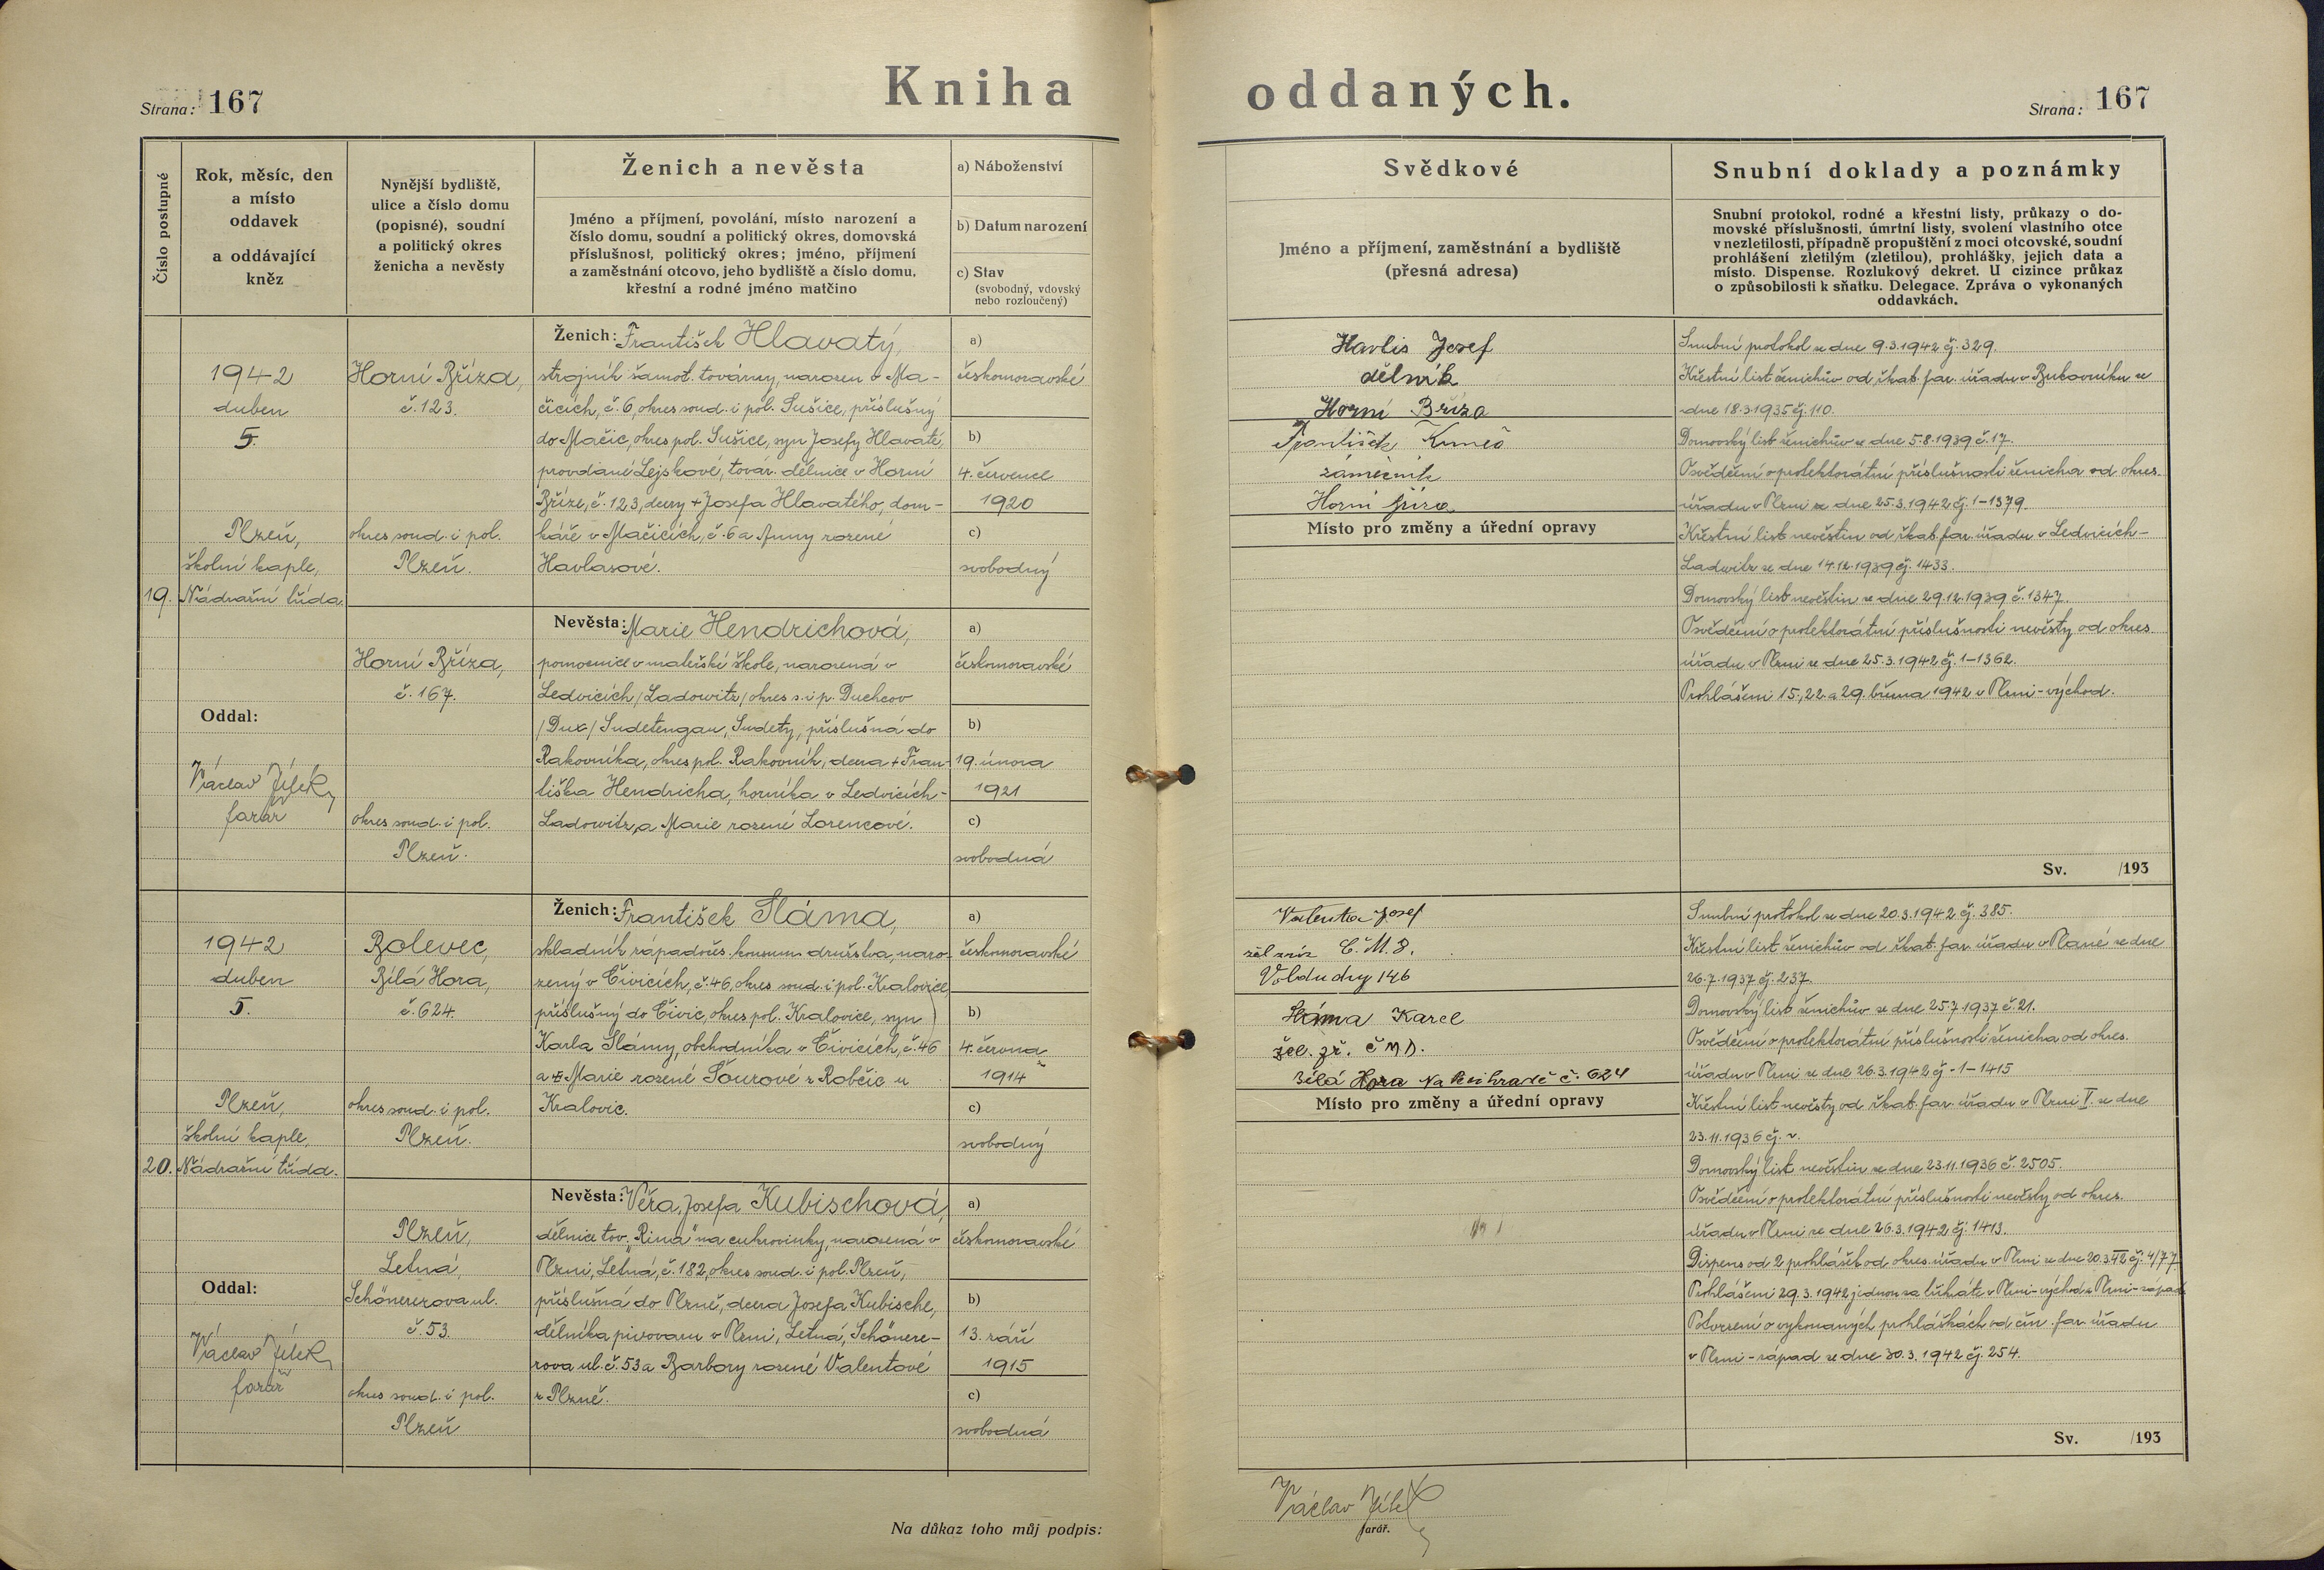 Kniha oddaných.
Strana: 167
Strana: 167
Číslo postupné
Rok, měsíc, den
a místo
oddavek
a oddávající
kněz
Nynější bydliště,
ulice a číslo domu
(popisné), soudní
a politický okres
ženicha a nevěsty
Ženich a nevěsta
Jméno a příjmení, povolání, místo narození a
číslo domu, soudní a politický okres, domovská
příslušnost, politický okres; jméno, příjmení
a zaměstnání otcovo, jeho bydliště a číslo domu,
křestní a rodné jméno matčino
a) Náboženství
b) Datum narození
c) Stav
(svobodný, vdovský
nebo rozloučený)
Svědkové
Jméno a příjmení, zaměstnání a bydliště
(přesná adresa)
Snubní doklady a poznámky
Snubní protokol, rodné a křestní listy, průkazy o do-
movské příslušnosti, úmrtní listy, svolení vlastního otce
v nezletilosti, případně propuštění z moci otcovské, soudní
prohlášení zletilým (zletilou), prohlášky, jejich data a
místo. Dispense. Rozlukový dekret. U cizince průkaz
o způsobilosti k sňatku. Delegace. Zpráva o vykonaných
oddavkách.
19.
1942
duben
5.
Plzeň,
školní kaple,
Nádražní třída.
Oddal:
Václav Jílek,
farář
Horní Bříza,
č. 123.
okres soud. i pol.
Plzeň.
Ženich: František Hlavatý,
strojník šamot. továrny, narozen v Ma-
čicích, č. 6, okres soud. i pol. Sušice, příslušný
do Mačic, okres pol. Sušice, syn Josefy Hlavaté,
provdané Lejskové, továr. dělnice v Horní
Bříze, č. 123, dcery + Josefa Hlavatého, dom-
káře v Mačicích, č. 6 a Anny rozené
Havlasové.
a)
českomoravské
b)
4. července
1920
c)
svobodný
Horní Bříza,
č. 167.
okres soud. i pol.
Plzeň.
Nevěsta: Marie Hendrichová,
pomocnice v mateřské škole, narozená v
Ledvicích /Ladowitz/ okres s. i p. Duchcov
/Dux/ Sudetengau, Sudety, příslušná do
Rakovníka, okres pol. Rakovník, dcera + Fran-
tiška Hendricha, horníka v Ledvicích-
Ladowitz, a Marie rozené Lorencové.
a)
českomoravské
b)
19. února
1921
c)
svobodná
Havlis Josef
dělník
Horní Bříza
František
zámečník
Horní Bříza
Místo pro změny a úřední opravy
Snubní protokol ze dne 9.3.1942 čj. 329.
Křestní list ženichův od řkat. far. úřadu v ze
dne 18.3.1935 čj. 110.
Domovský list ženichův ze dne 5.8.1939 č. 17.
Osvědčení o protektorátní příslušnosti ženicha od okres.
úřadu v Plzni ze dne 25.3.1942 čj. 1-1379.
Křestní list nevěstin od řkat. far. úřadu v Ledvicích-
Ladwitz ze dne 14.12.1939 čj. 1433.
Domovský list nevěstin ze dne 29.12.1939 č. 1347.
Osvědčení o protektorátní příslušnosti nevěsty od okres.
úřadu v Plzni ze dne 25.3.1942 čj. 1-1362.
Prohlášeni 15., 22. a 29. března 1942 v Plzni-východ.
Sv. /193
20.
1942
duben
5.
Plzeň,
školní kaple,
Nádražní třída.
Oddal:
Václav Jílek,
farář
Bolevec,
Bílá Hora,
č. 624.
okres soud. i pol.
Plzeň.
Ženich: František Sláma,
skladník západočes. konsum. družstva, naro-
zený v Čivicích, č. 46, okres soud. i pol. Kralovice,
příslušný do Čivic, okres pol. Kralovice, syn
Karla Slámy, obchodníka v Čivicích, č. 46
a Marie rozené Šourové z Robčic u
Kralovic.
a)
českomoravské
b)
4. června
1914
c)
svobodný
Plzeň,
Letná,
Schönererova ul.
č. 53.
okres soud. i pol.
Plzeň
Nevěsta: Věra, Josefa Kubischová,
dělnice tov. "Rina" na cukrovinky, narozená v
Plzni, Letná, č. 182, okres soud. i pol. Plzeň,
příslušná do Plzně, dcera Josefa Kubische,
dělníka pivovaru v Plzni, Letná, Schönere-
rova ul. č. 53 a Barbory rozené Valentové
z Plzně.
a)
českomoravské
b)
13. září
1915
c)
svobodná
Valenta Josef
Č.M.D.
Valduchy 146
Sláma Karel
žel. zř. ČMD.
Bílá Hora Na č. 624
Místo pro změny a úřední opravy
Snubní protokol ze dne 20.3.1942 čj. 385.
Křestní list ženichův od řkat. far. úřadu v Plané ze dne
26.7.1937 čj. 237.
Domovský list ženichův ze dne 25.7.1937 č. 21.
Osvědčení o protektorátní příslušnosti ženicha od okres.
úřadu v Plzni ze dne 26.3.1942 čj. 1-1415
Křestní list nevěsty od řkat. far. úřadu v Plzni V. ze dne
23.11.1936 čj. v.
Domovský list nevěstin ze dne 23.11.1936 č. 2505.
Osvědčení o protektorátní příslušnosti nevěsty od okres.
úřadu v Plzni ze dne 26.3.1942 čj. 1413.
Dispens od 2 prohlášek od okres. úřadu v Plzni ze dne 20.3.42 čj. 4/77
Prohlášeni 29.3.1942 jednou za třikráte v Plzni-východ a Plzni-západ
Potvrzení o vykonaných prohláškách od far. úřadu
v Plzni-západ ze dne 30.3.1942 čj. 254.
Sv. /193
Na důkaz toho můj podpis:
Václav Jílek
farář.